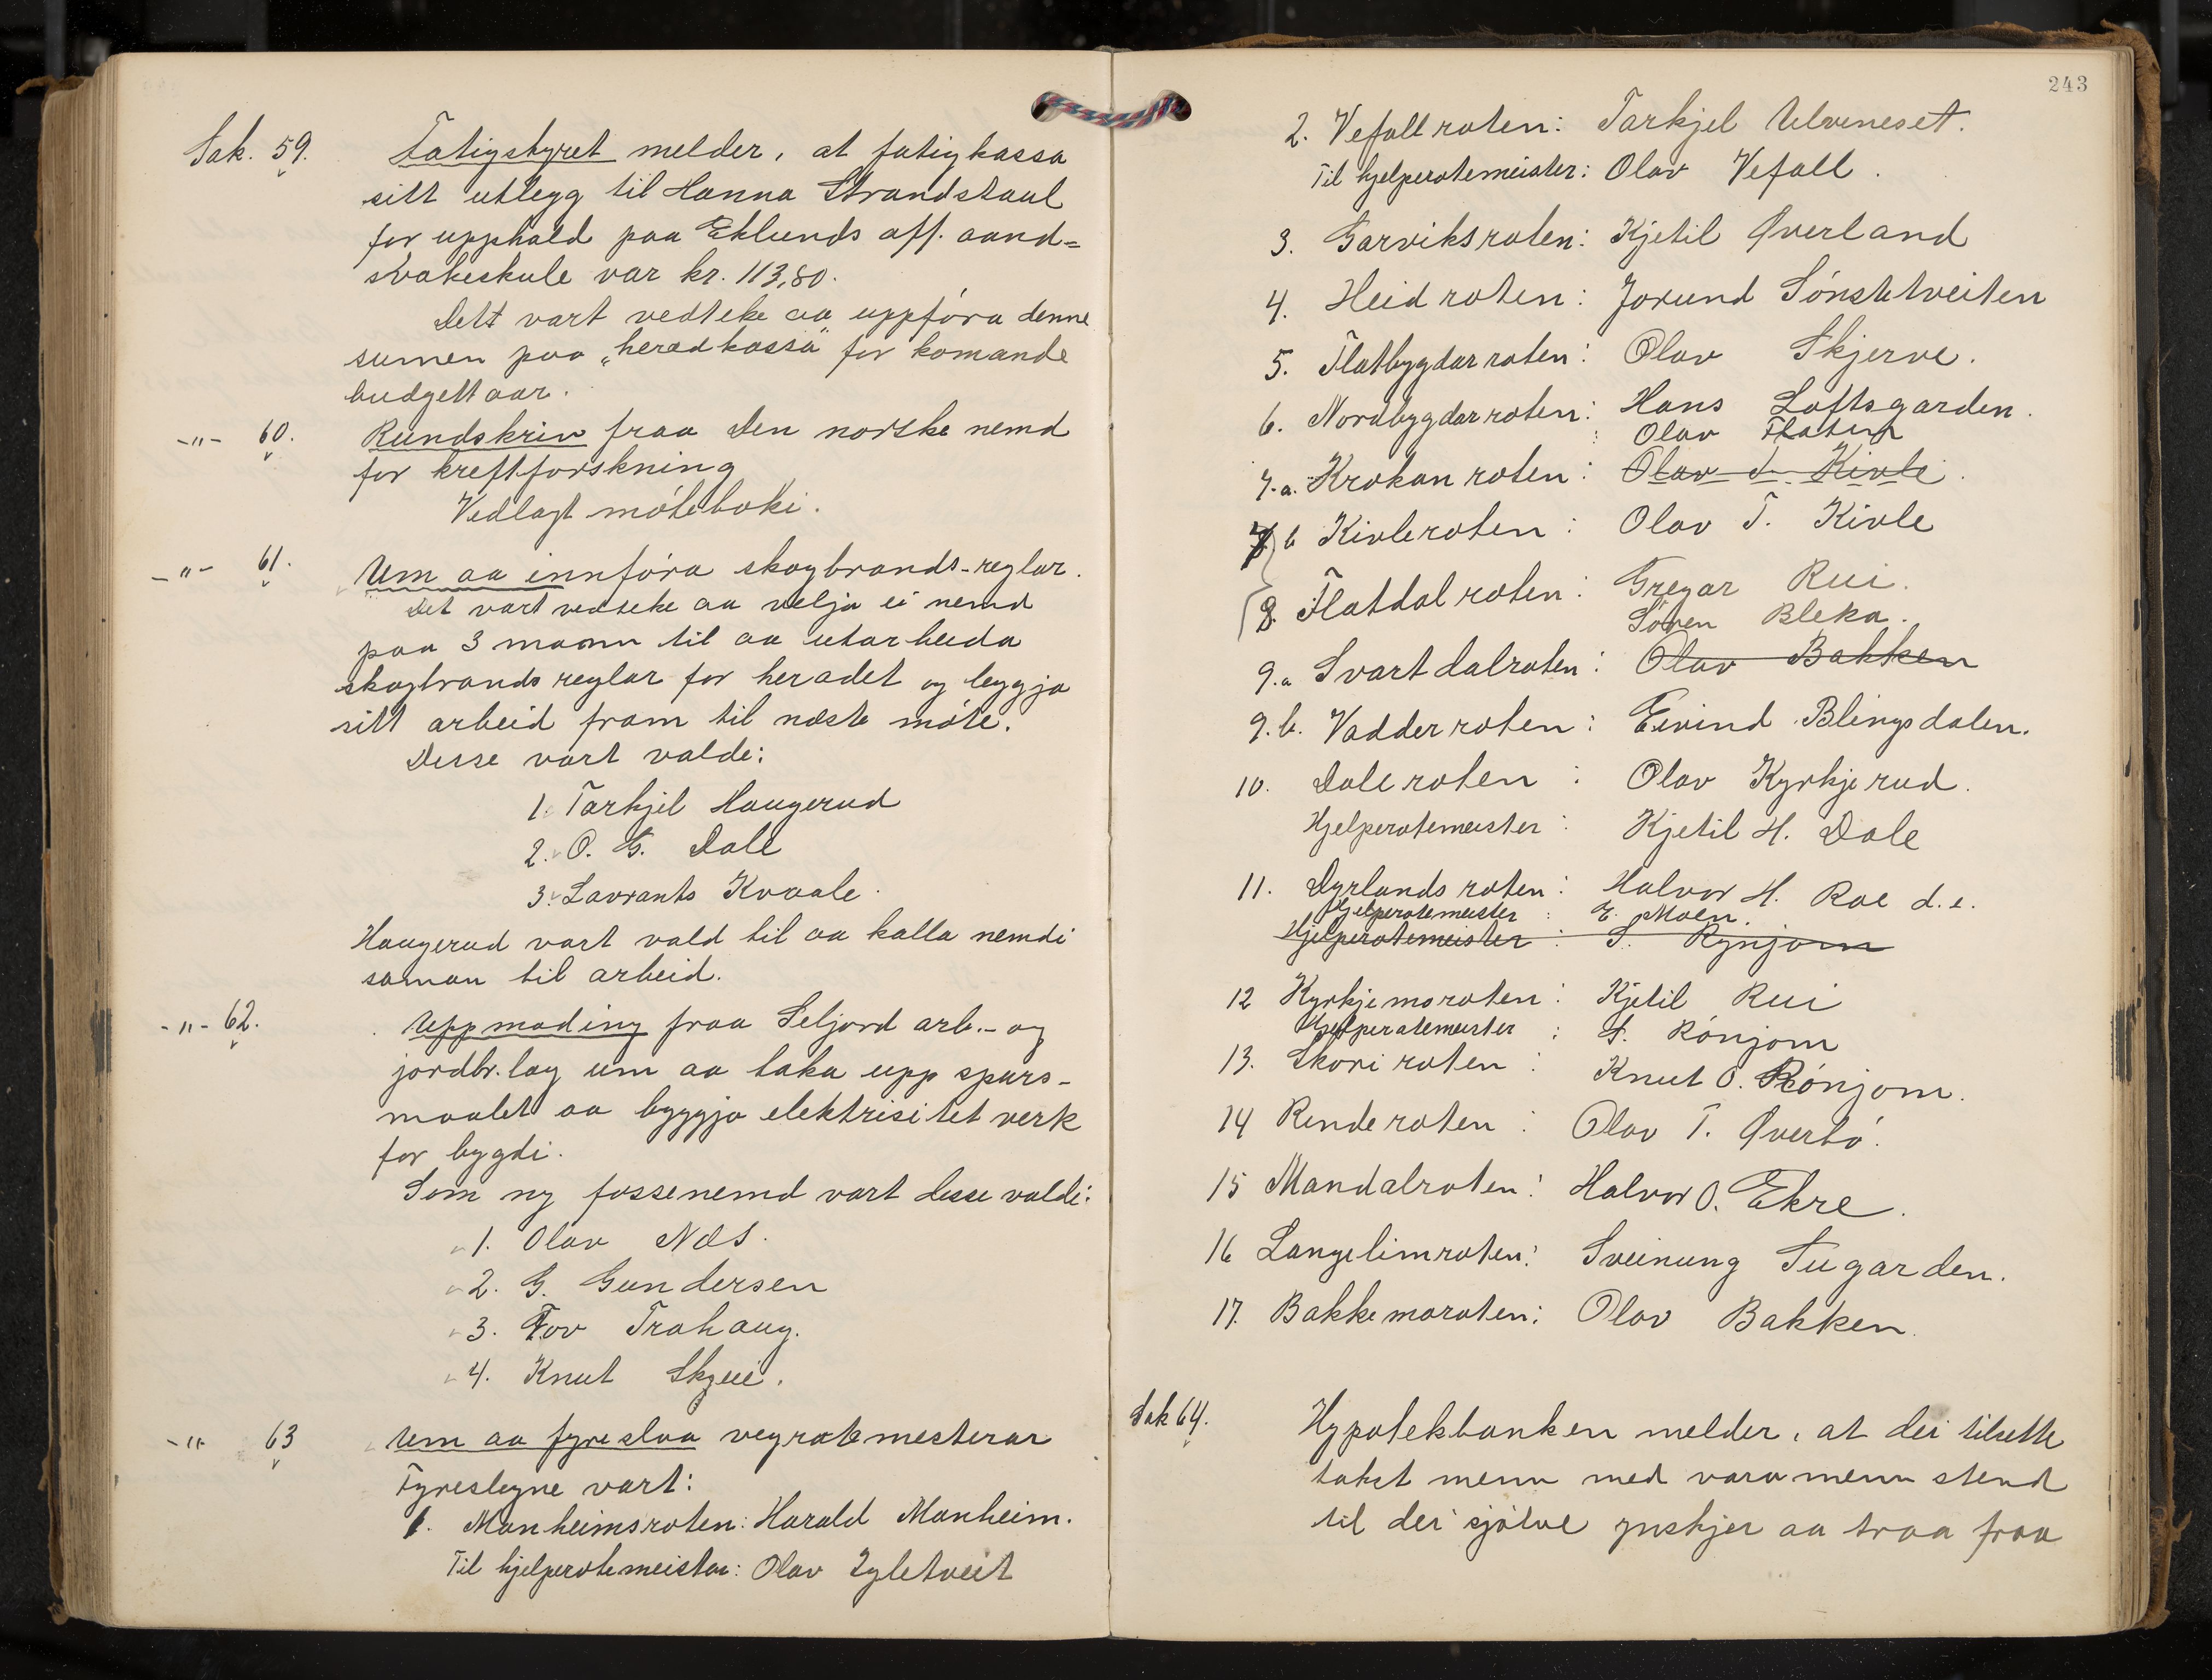 Sak. 59. Fatigstyret melder, at fatigkassa
sitt utlegg til Hanna Strandstaul
for upphald paa Eklunds off. aand-
svakeskule var kr. 113,80.
Dett vart vedteke aa uppfóra denne
sumen paa "heradkassa" for komande
budgettaar.
-"- 60. Rundskriv fraa Den norske nemd
for kreftforskning
Vedlagt móteboki.
-"- 61. Um aa innfóra skogbrands-reglar.
Det vart vedteke aa velja ei nemd
paa 3 mann til aa utarbeida
skogbrandsreglar for heradet og leggja
sitt arbeid fram til næste móte.
Desse vart valde:
1. Tarkjel Haugerud
2. O. G. Dale
3. Lavrants Kvaale.
Haugerud vart vald til aa kalla nemdi
saman til arbeid.
-"- 62. Uppmoding fraa Seljord arb.- og
jordbr.lag um aa taka upp spurs-
maalet aa byggja elektrisitetverk
for bygdi.
Som ny fossenemd vart desse valde:
1. Olav Næs.
2. G. Gundersen
3. Tov Trahaug.
4. Knut Skjeie.
-"- 63 Um aa fyreslaa vegrotemesterar
Fyreslegne vart:
1. Manheimsroten: Harald Manheim.
Til hjelperotemeister: Olav Igletveit
243
2. Vefallroten: Tarkjel Ulveneset.
Til hjelperotemeister: Olav Vefall.
3. Garviksroten: Kjetil Øverland
4. Heidroten: Jorund Sónstetveiten
5. Flatbygdarroten: Olav Skjerve.
6. Nordbygdarroten: Hans Loftsgarden.
Olav Flatin
7.a. Krokanroten: Olav Kivle.
7 b Kivleroten: Olav T. Kivle
8. Flatdalroten: Gregar Rui.
Sóren Bleka.
9.a Svartdalroten: Olav Bakken
9.b. Vadderroten: Eivind Blingsdalen.
10. Daleroten: Olav Kyrkjerud.
Hjelperotemeister: Kjetil H. Dale
11. Dyrlandsroten: Halvor H. Roe d.e.
Hjelperotemeister: E. Moen.
Hjelperotemeister: S. Rynjom
12 Kyrkjemoroten: Kjetil Rui
Hjelperotemeister: S. Rónjom
13. Skoriroten: Knut O. Rónjom.
14 Rinderoten: Olav T. Øverbó.
15 Mandalroten: Halvor O. Ekre.
16 Langelimroten: Sveinung Tugarden.
17. Bakkemoroten: Olav Bakken.
Sak 64. Hypotekbanken melder, at dei tilsette
takst menn med varamenn stend
til dei sjólve ynskjer aa traa fraa